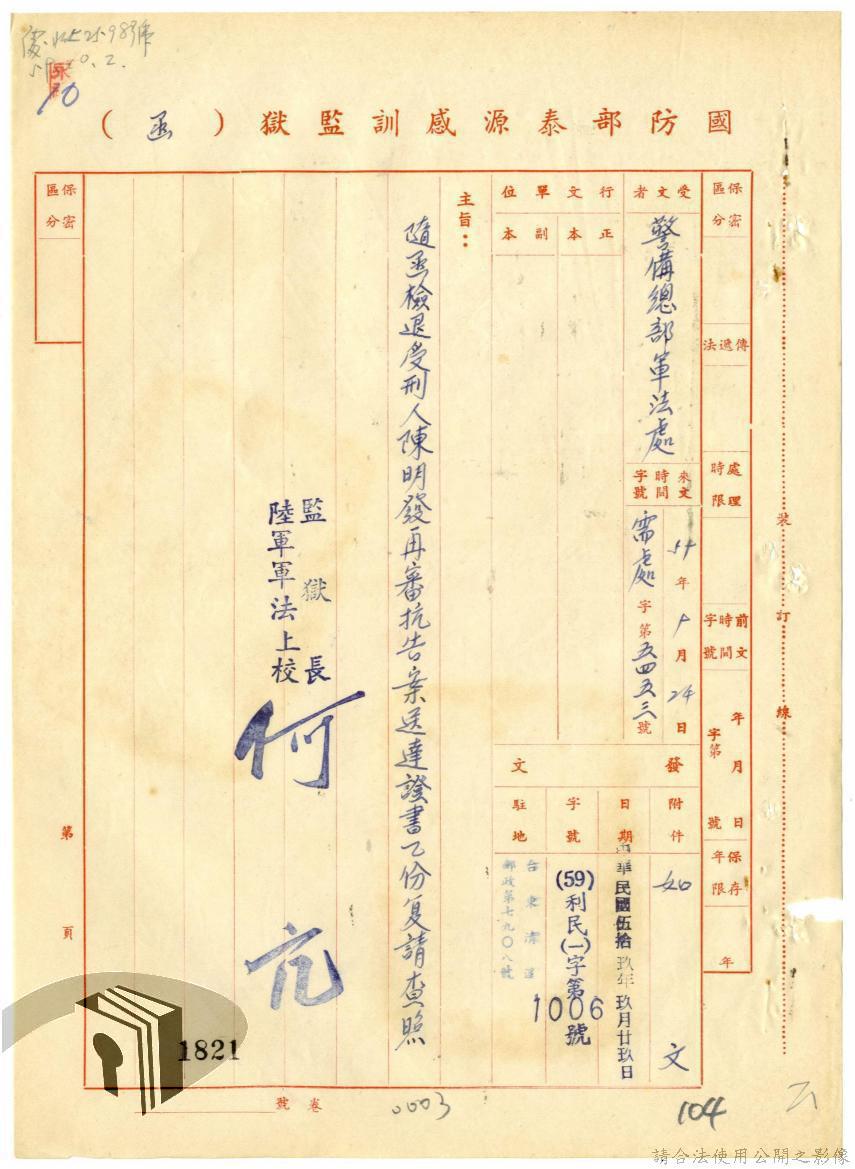 10
國防部泰源感訓監獄（函）
保密區分
傳遞法
處理時限
前文時間字號
年月日
字第號
保存年限
年
裝訂線
受文者
警備總部軍法處
來文時間字號
59年9月24日
需處字第五四五三號
行文單位
正本
副本
發文
附件
如文
日期
中華民國伍拾玖年玖月廿玖日
字號
(59)利民(一)字第1006號
駐地
台東
郵政第七九〇八號
主旨：
隨函檢退受刑人陳明發再審抗告案送達證書乙份复請查照
監獄長
陸軍軍法上校
何
亢
保密區分
第頁
1821
卷號
0003
104
請合法使用公開之影像